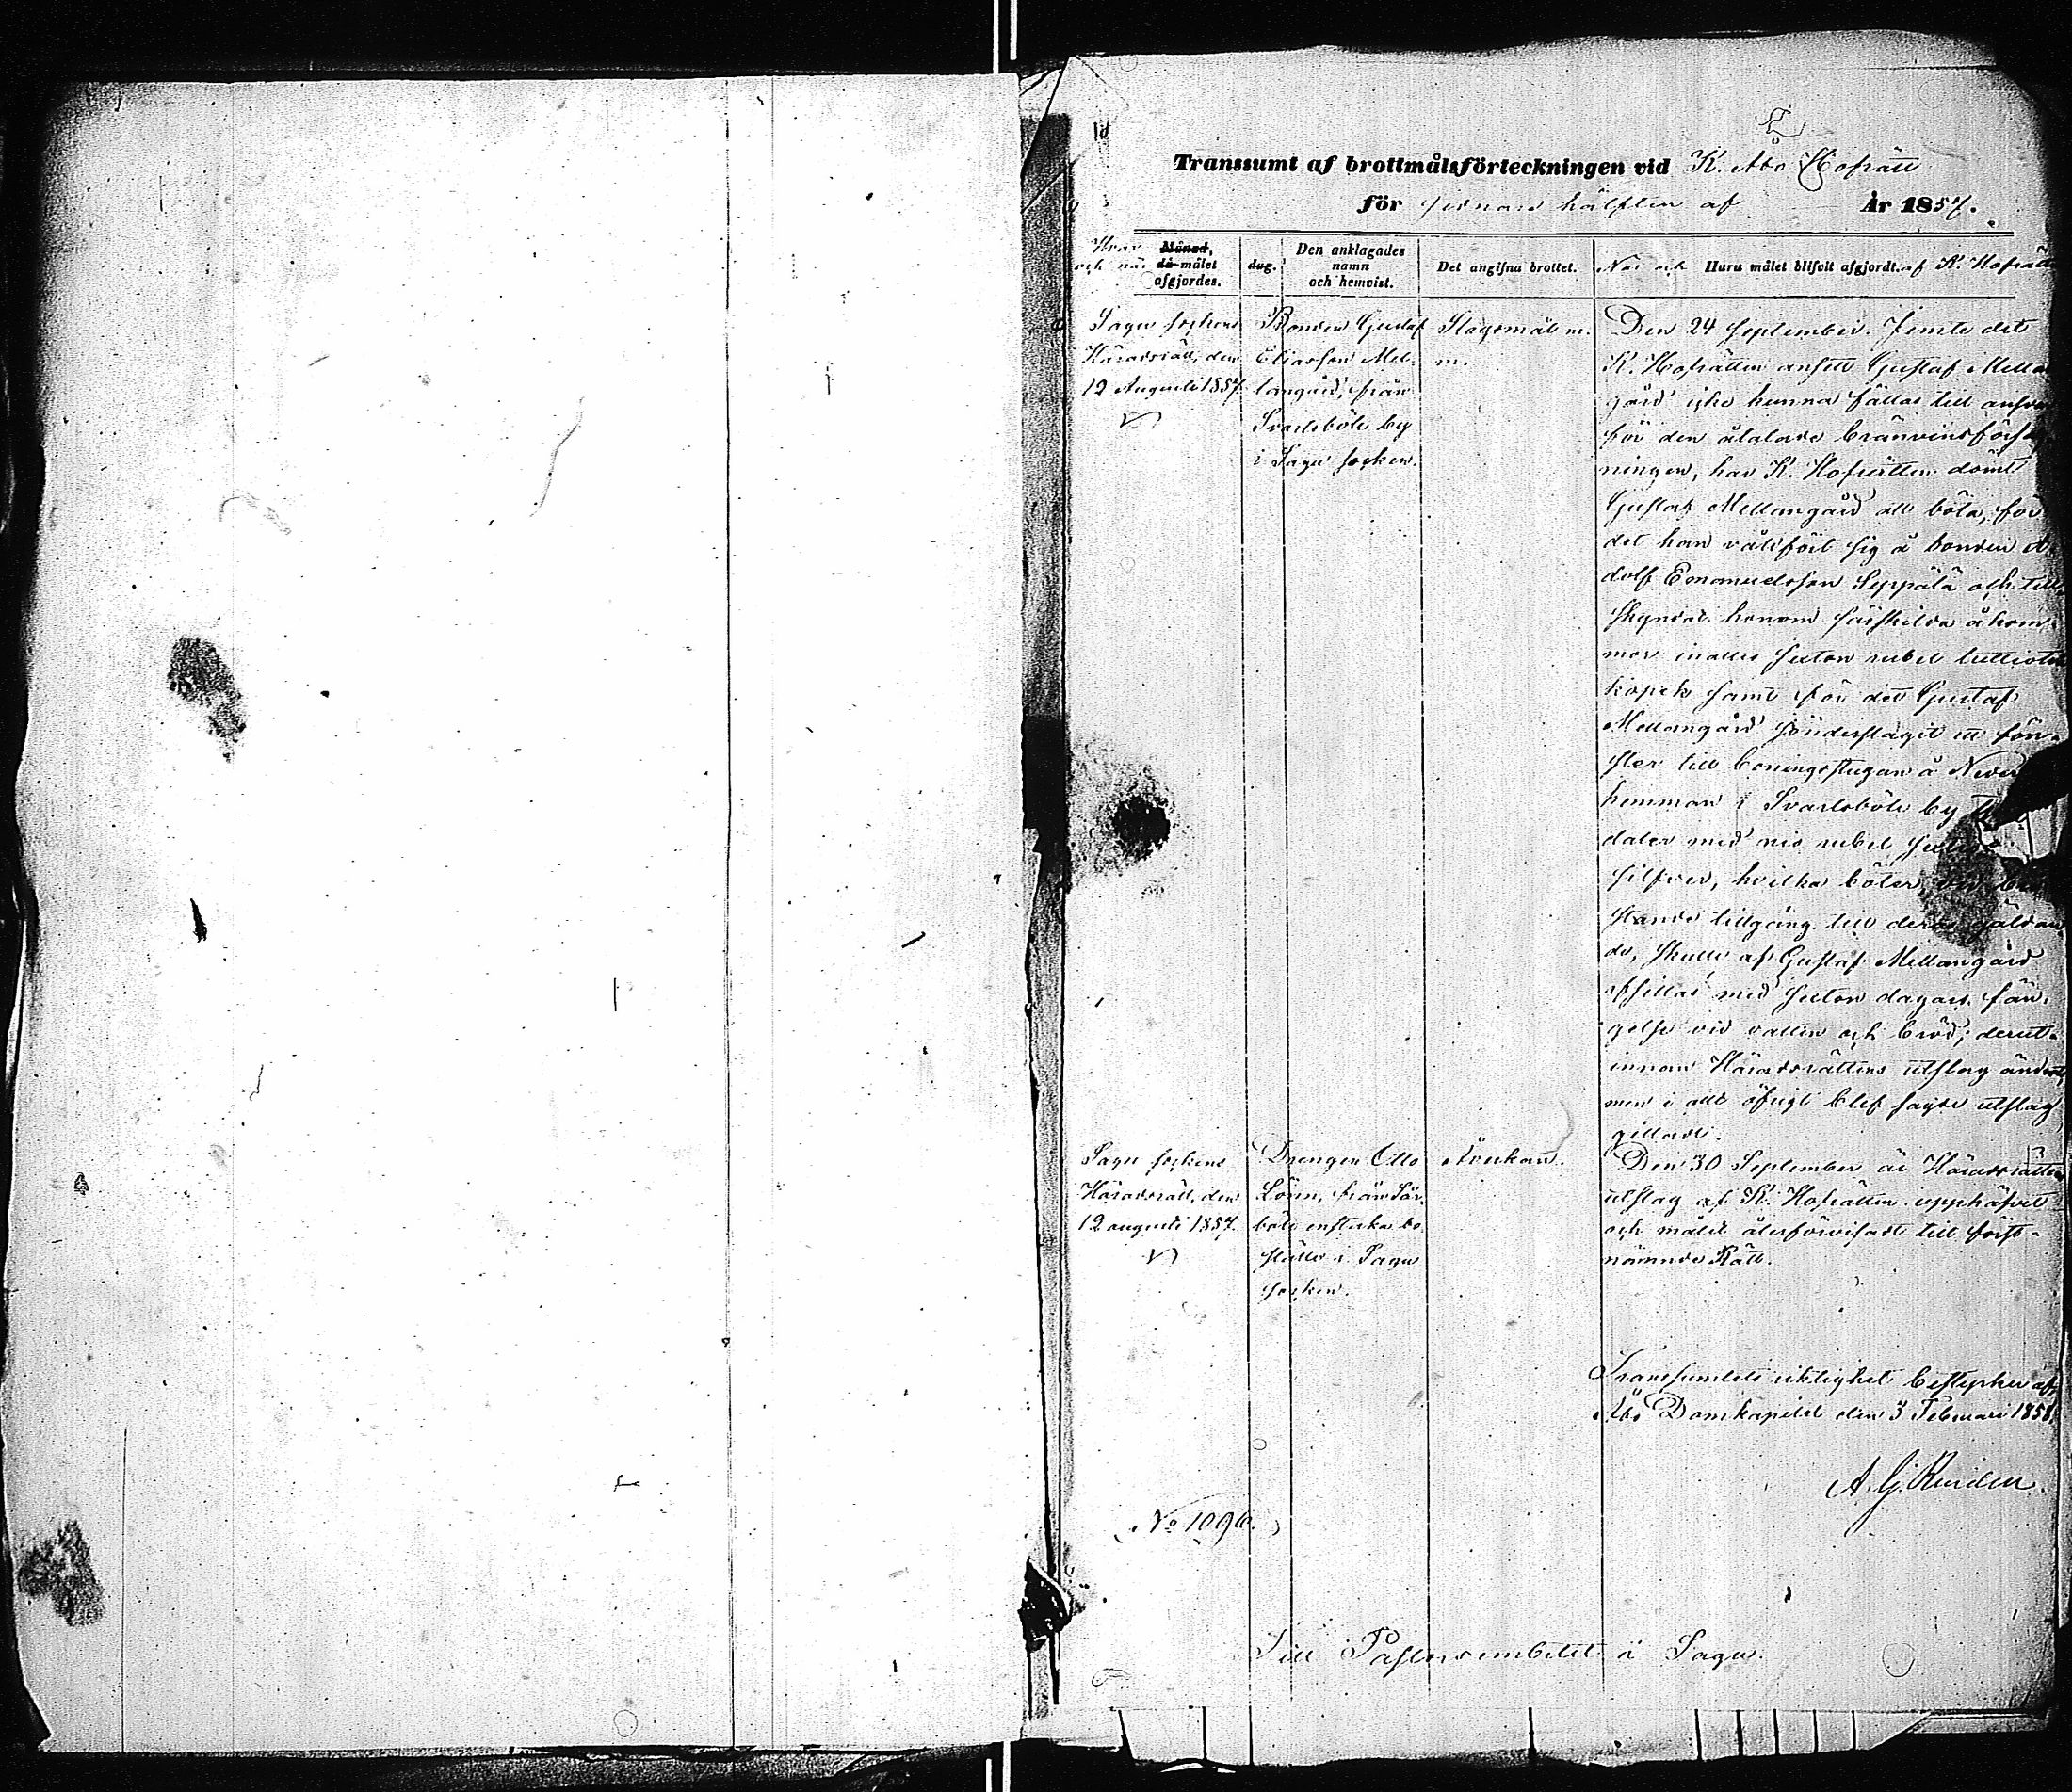 Transsumt af brottmålsförteckningen vid K. Åbo Hofrätt
för sednare hälften af År 1857.
Hvar och när Månad, då målet afgjordes.
dag.
Den anklagades namn och hemvist.
Det angifna brottet.
När och Huru målet blifvit afgjordt af K. Hofrätt
Sagu sockens
Häradsrätt, den
12 Augusti 1857.
Bonden Gustaf
Eliasson Mel-
langård, från
Svartsböle by
i Sagu socken.
Slagsmål m.
m.
Den 24 September. Jemte det
K. Hofrätten ansett Gustaf Mellan
gård icke kunna fällas till ansvar
för den åtalade bränvinsförsälj
ningen, har K. Hofrätten dömt
Gustaf Mellangård att böta, för
det han våldfört sig å bonden A
dolf Emanuelsson Seppälä och till
skyndat honom särskilda åkom-
mor inalles sexton rubel
kopek samt för det Gustaf
Mellangård sönderslagit ett fön-
ster till boningsstugan å
hemman i Svartsböle by
daler med nio rubel
silfver, hvilka böter, vid
stånde tillgång till deras gäldan
de, skulle af Gustaf Mellangård
afsittas med sexton dagars fän-
gelse vid vatten och bröd; derut-
innan Häradsrättens utslag ändrat,
men i allt öfrigt blef sagde utslag
gilladt.
Sagu sockens
Häradsrätt, den
12 augusti 1857.
Drengen Otto
Lönn, från Sär-
böle enstaka bo-
ställe i Sagu
socken.
Åverkan.
Den 30 September är Häradsrättens
utslag af K. Hofrätten upphäfvet
och målet återförvisadt till först-
nämnde Rätt.
Transsumtets riktighet bestyrker af
Åbo Domkapitel den 3 Februari 1858.
No 1096.
Till Pastorsembetet i Sagu.